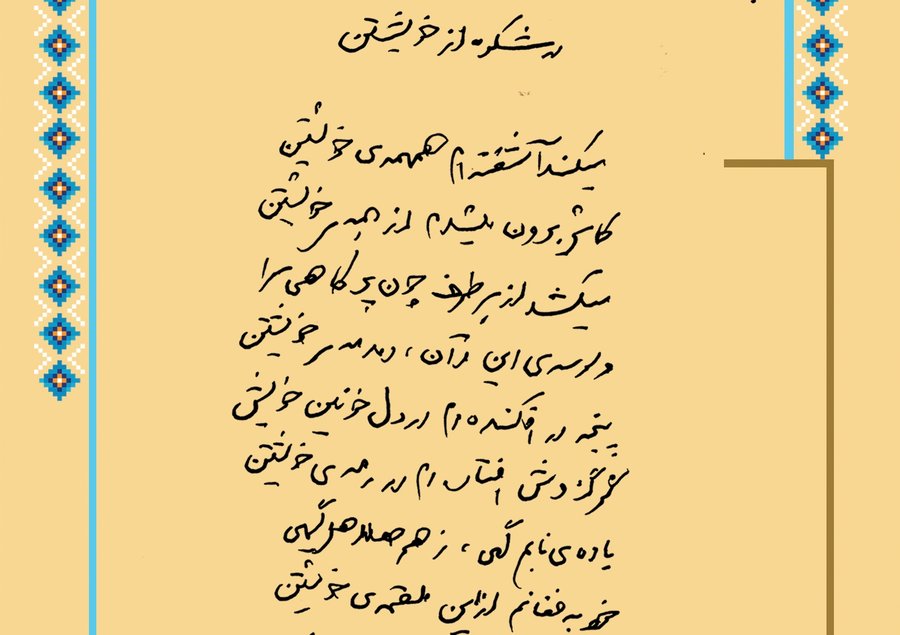 در شکوه از خویشتن
میکند آشفته ام همهمه ی خویشتن
کاش برون میشدم از همه ی خویشتن
میکشد از هر طرف چون پر کاهی مرا
وسوسه ی این و آن، دمدمه ی خویشتن
پنجه در افکنده ام در دل خونین خویش
گرگ وش افتاده ام در رمه ی خویشتن
باده ی نابم گهی، زهر هلاهل گهی
خود به فغانم از این ملقمه ی خویشتن